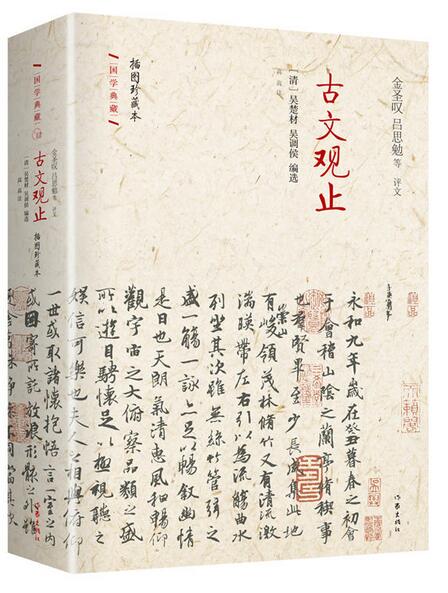 金圣叹 吕思勉 等 评文
古文观止
[清] 吴楚材 吴调侯 编选
插图珍藏本
国学典藏
永和九年歲在癸丑暮春之初會
于會稽山陰之蘭亭脩稧事
也群賢畢至少長咸集此地
有崇山峻領茂林脩竹又有清流激
湍暎帶左右引以為流觴曲水
列坐其次雖無絲竹管弦之
盛一觴一詠亦足以暢敘幽情
是日也天朗氣清惠風和暢仰
觀宇宙之大俯察品類之盛
所以遊目騁懷足以極視聽之
娛信可樂也夫人之相與俯仰
一世或取諸懷抱悟言一室之內
或因寄所託放浪形骸之外雖
作家出版社
国学典藏
金圣叹 吕思勉 等 评文
古文观止
[清] 吴楚材 吴调侯 编选
插图珍藏本